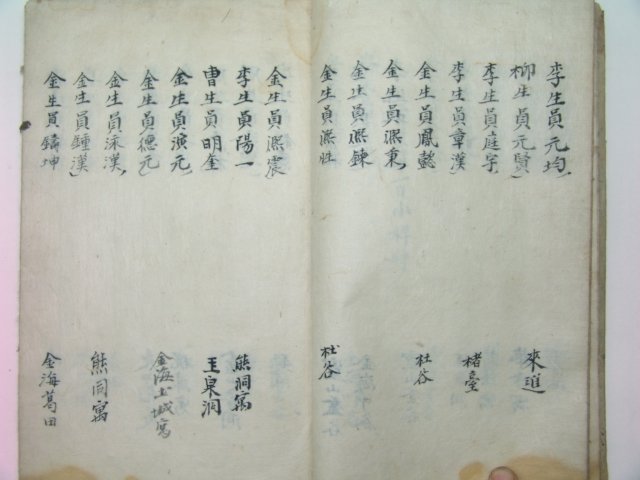 李生員元均
柳生員元賢
李生員庭宇 來進
李生員章漢 楮臺
金生員鳳懿 杜谷
金生員熙秉
金生員熙鍊
金生員熙性 杜谷
金生員熙震
李生員陽一 熊洞寓
曺生員明奎 玉泉洞
金生員演元
金生員德元 金海上城寓
金生員泳漢
金生員鍾漢 熊洞寓
金生員鑄坤 金海葛田